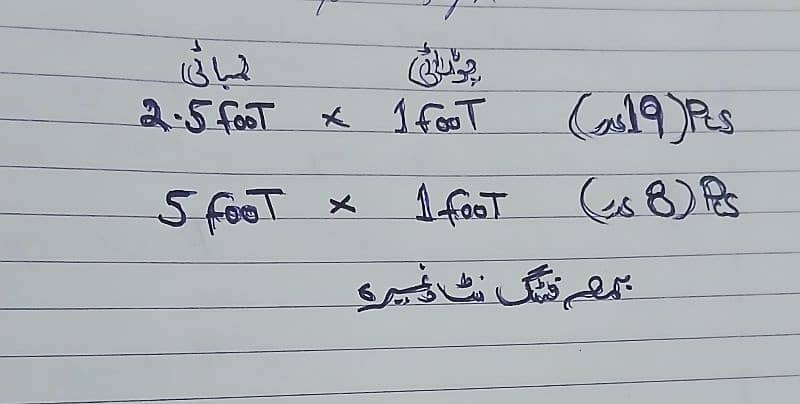 لمبائی چوڑائی
2.5 fooT x 1 fooT (19عدد) Pcs
5 fooT x 1 fooT (8عدد) Pcs
بمعہ فٹنگ نٹ وغیرہ